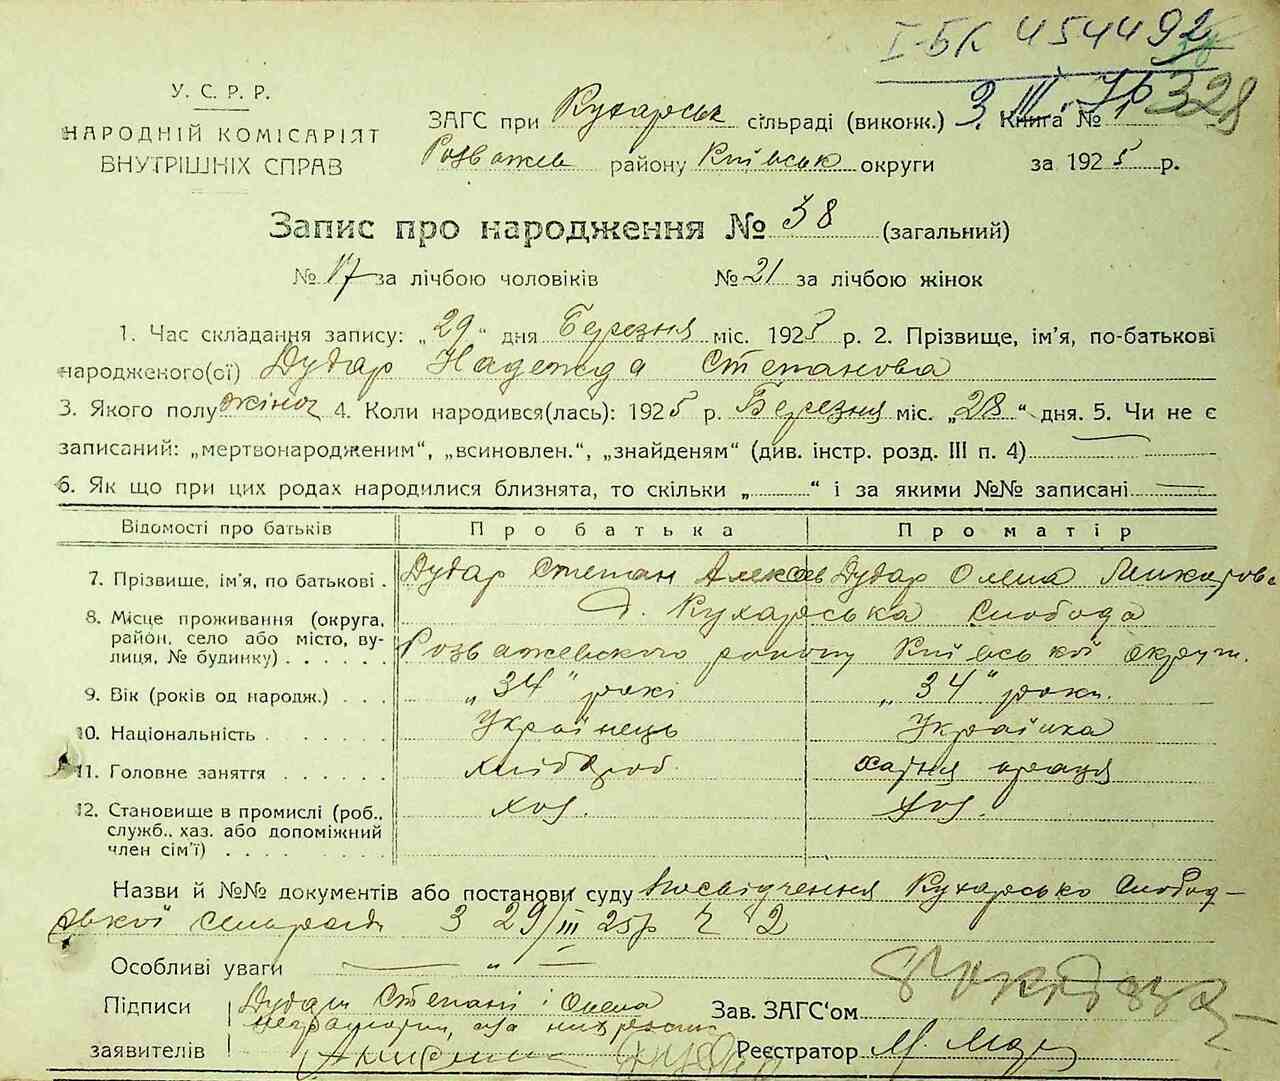 I-БК 454492
328
У. С. Р. Р.
НАРОДНІЙ КОМІСАРІЯТ
ВНУТРІШНІХ СПРАВ
ЗАГС при Кухарськ сільраді (виконк.) Книга №
Розважев району Київськ округи за 1925 р.
Запис про народження № 38 (загальний)
№ 17 за лічбою чоловіків № 21 за лічбою жінок
1. Час складання запису: „29“ дня Березня міс. 1925 р. 2. Прізвище, ім'я, по-батькові
народженого(ої) Дудар Надежда Степанова
3. Якого полу жіноч 4. Коли народився(лась): 1925 р. Березня міс. „28“ дня. 5. Чи не є
записаний: „мертвонародженим“, „всиновлен.“, „знайденям“ (див. інстр. розд. III п. 4)
6. Як що при цих родах народилися близнята, то скільки „ “ і за якими №№ записані —
Відомості про батьків Про батька Про матір
7. Прізвище, ім'я, по батькові . Дудар Степан Алексеев Дудар Олена Макарова
8. Місце проживання (округа, район, село або місто, вулиця, № будинку) . . . . . . д. Кухарська Слобода
Розважевского району Київської округи.
9. Вік (років од народж.) . . . „34“ рокі „34“ роки.
10. Національність . . . . . . Українець Українка
11. Головне заняття . . . . . . хлібороб. хатня праця
12. Становище в промислі (роб., служб., хаз. або допоміжний член сім'ї) . . . . . . хоз. хоз.
Назви й №№ документів або постанови суду Посвідчення Кухарсько Слобод-
ської Сильради З 29/III 25р Ч 2
Особливі уваги — „ —
Підписи Степані і Олена Зав. ЗАГС'ом
неграмотні, а за них
заявителів Реєстратор М.